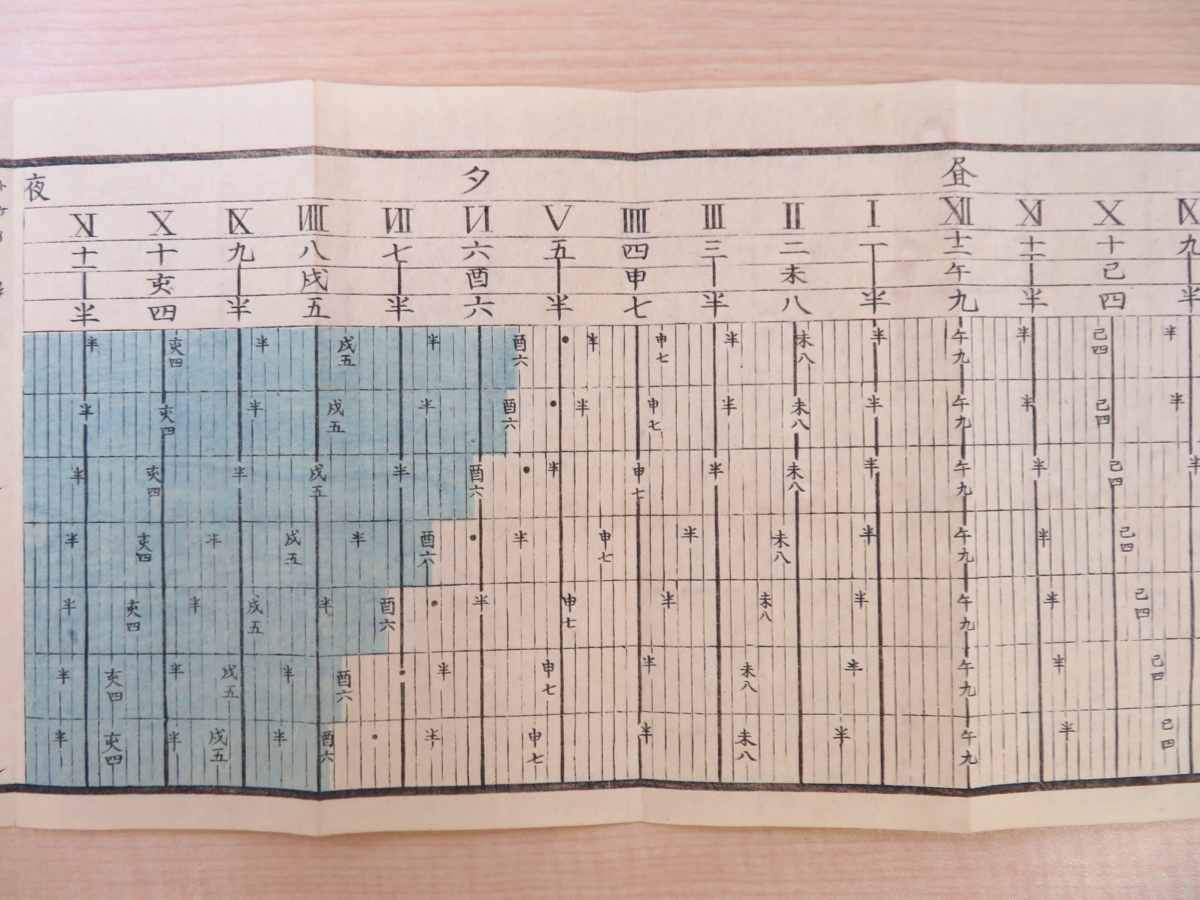 夜 夕 昼
Ⅺ Ⅹ Ⅸ ⅧI Ⅶ Ⅵ Ⅴ IIII Ⅲ Ⅱ Ⅰ Ⅻ Ⅺ Ⅹ Ⅸ
十一 十 九 八 七 六 五 四 三 二 一 十二 十一 十 九
亥 戌 酉 申 未 午 巳
半 四 半 五 半 六 半 七 半 八 半 九 半 四 半
半 亥四 半 戌五 半 酉六 • 半 申七 半 未八 半 午九 半 巳四 半
半 亥四 半 戌五 半 酉六 • 半 申七 半 未八 半 午九 半 巳四 半
半 亥四 半 戌五 半 酉六 • 半 申七 半 未八 半 午九 半 巳四 半
半 亥四 半 戌五 半 酉六 • 半 申七 半 未八 半 午九 半 巳四
半 亥四 半 戌五 半 酉六 • 半 申七 半 未八 半 午九 半 巳四
半 亥四 半 戌五 半 酉六 • 半 申七 半 未八 半 午九 半 巳四
半 亥四 半 戌五 半 酉六 • 半 申七 半 未八 半 午九 半 巳四